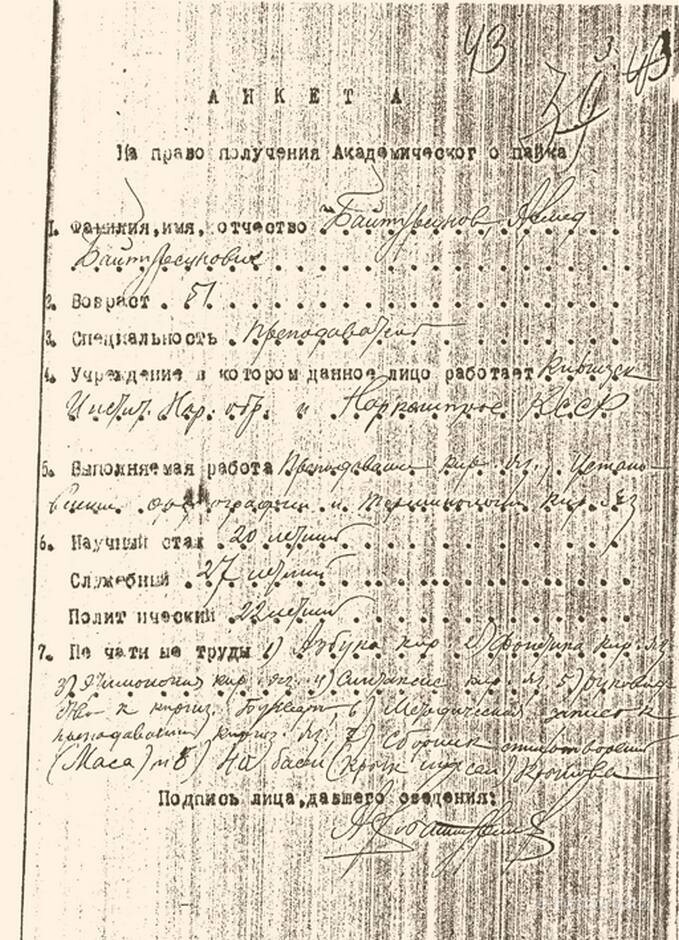 43
3.
43
АНКЕТА
На право получения Академическог о пайка
1. Фамилия,имя, отчество Байтурсунов Ахмед
Байтурсунович
2. Возраст . 51
3. Специальность . Преподаватель
4. Учреждение в котором данное лицо работает Киргизск
Инстит. Нар. обр. и Наркомпрос КССР
5. Выполняемая работа Преподавание кир. яз., Устано-
вление орфографии и терминологии кир. яз
6. Научный стаж . 20 летний
Служебный . 27 летний
Полит ический . 22 летний
7. Пе чати ые труды 1) Азбука кир 2) Фонетика кир. яз
3) Этимология кир. яз. 4) Синтаксис кир. яз 5) Руковод-
ство к киргиз. Букварю 6) Методическая записка к
преподаванию киргиз. яз. 7) Сборник стихотворений
(Маса) и 8) 40 басен (Кырк мысал) Крылова
Подпись лица,давшего сведения: